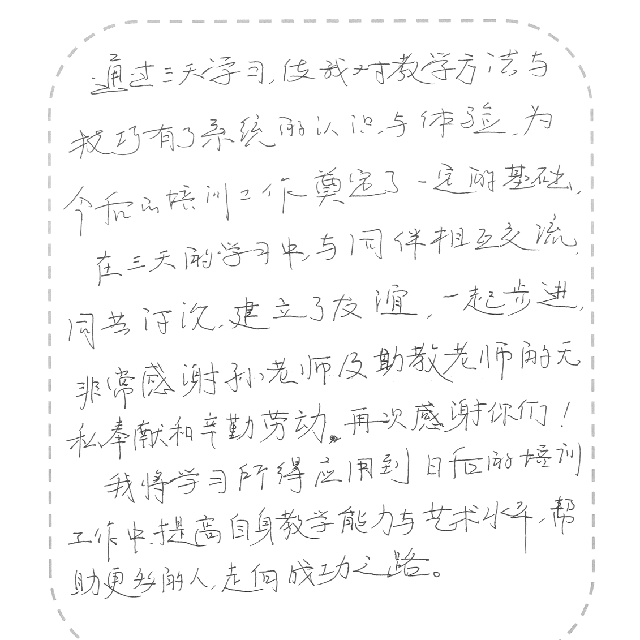 通过三天学习,使我对教学方法与
技巧有了系统的认识与体验,为
今后的培训工作奠定了一定的基础,
在三天的学习中,与同伴相互交流,
同共讨论,建立了友谊,一起步进,
非常感谢孙老师及助教老师的无
私奉献和辛勤劳动。再次感谢你们!
我将学习所得应用到日后的培训
工作中,提高自身教学能力与艺术水平,帮
助更多的人,走向成功之路。